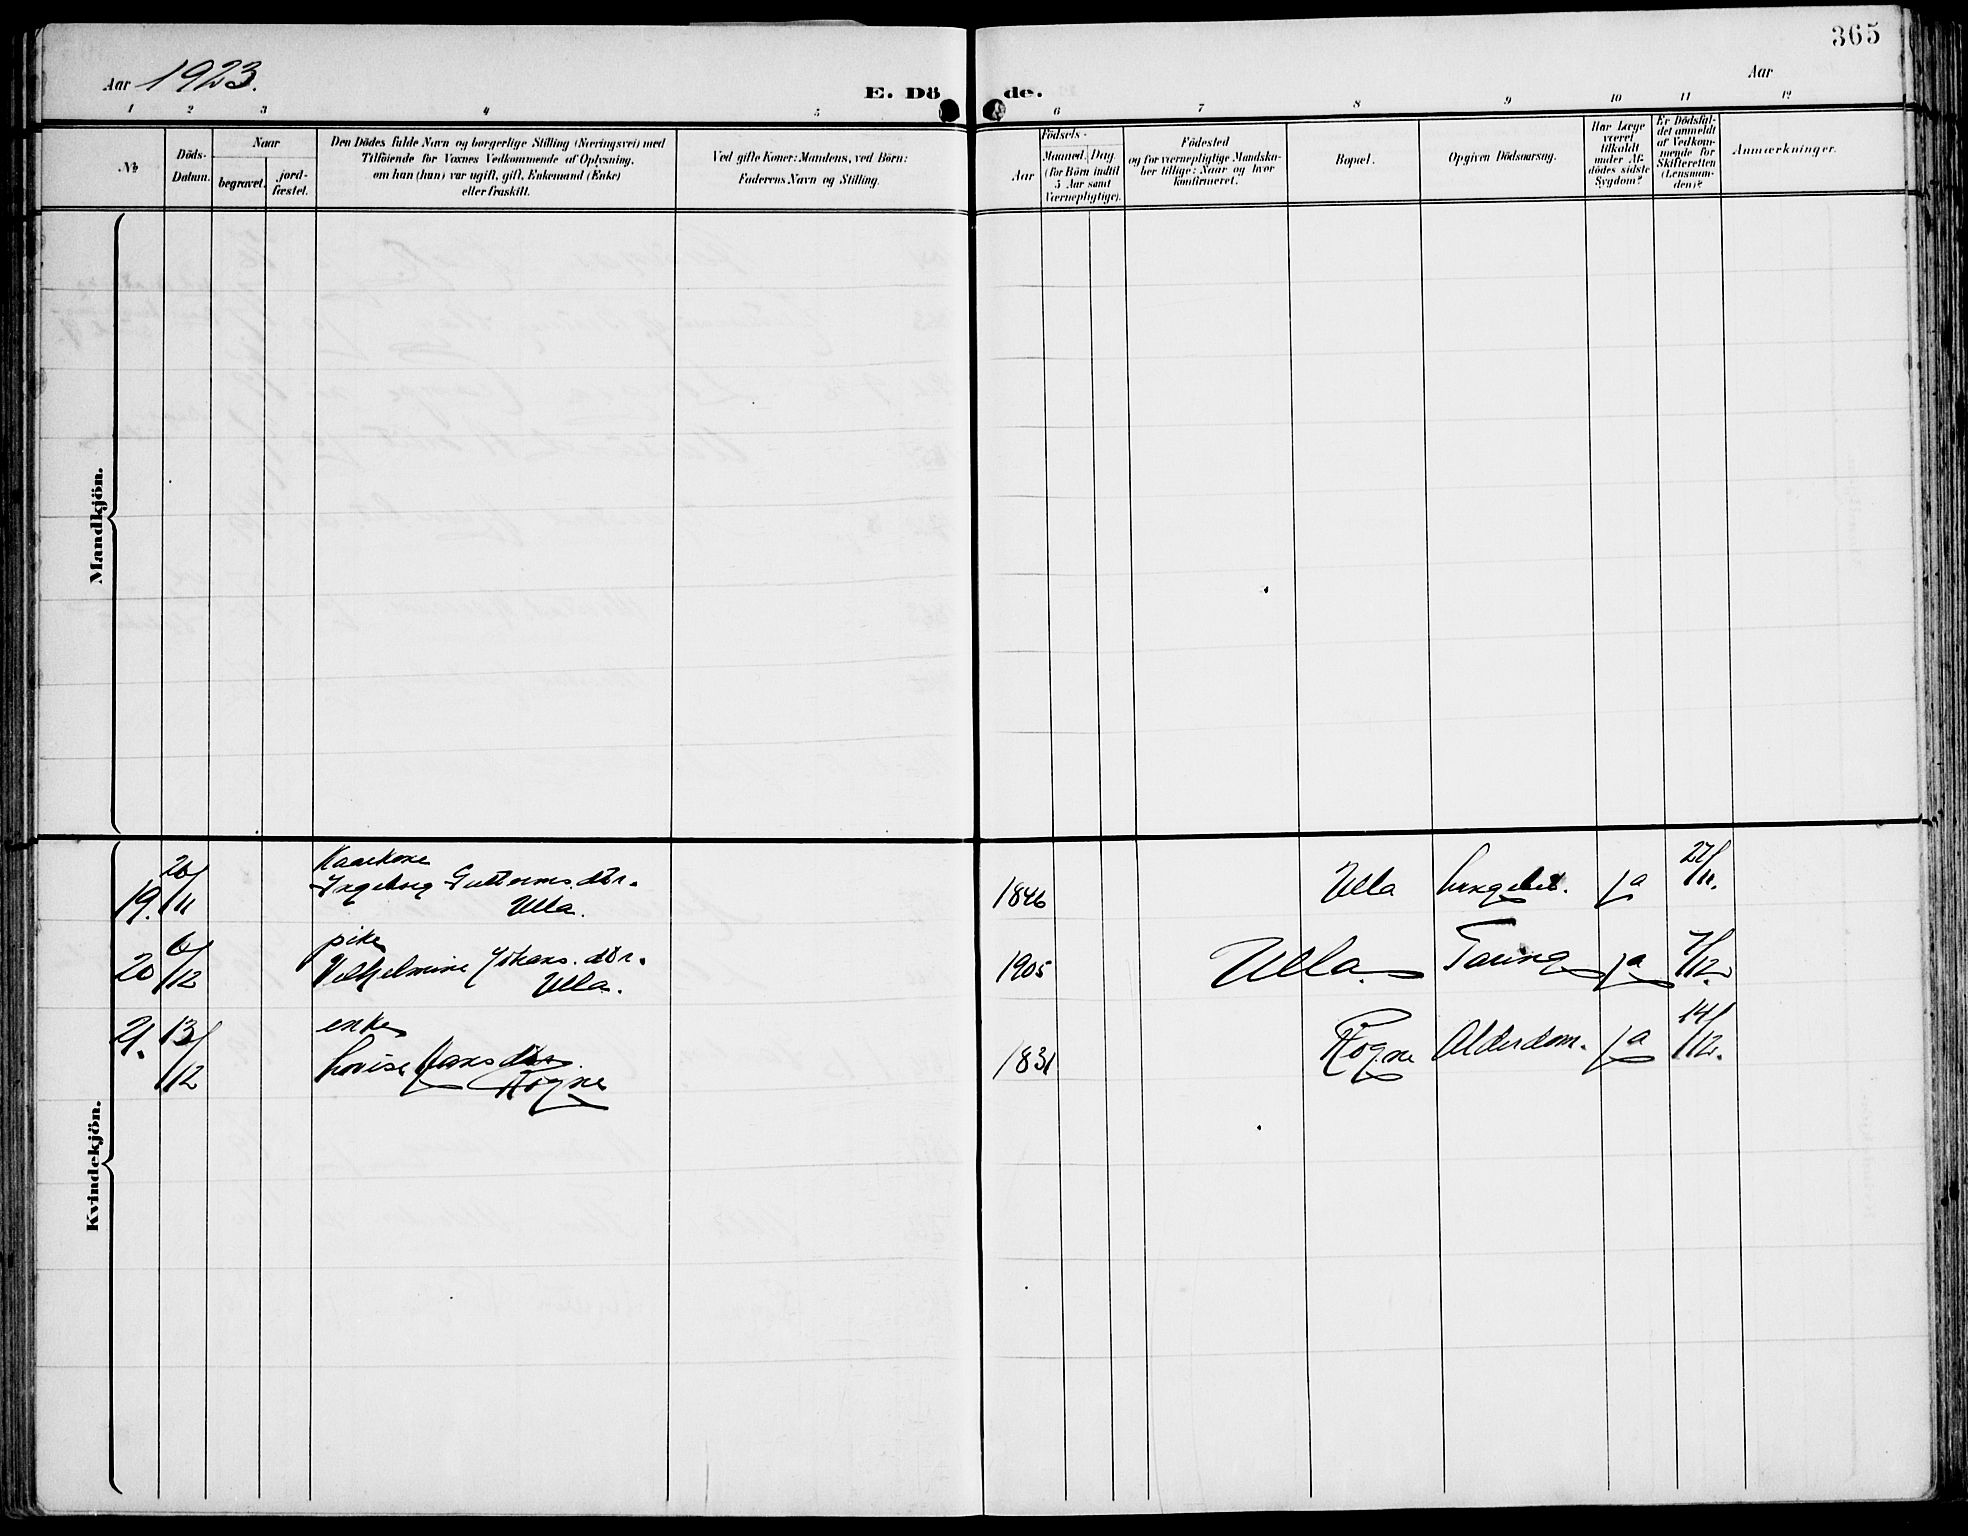 365
Aar 1923.
E. Döde.
Aar
1 2 3 4 5 6 7 8 9 10 11 12
No
Döds-
Datum.
Naar
begravet.
jord-
fæstet.
Den Dödes fulde Navn og borgerlige Stilling (Næringsvei) med
Tilföiende for Voxnes Vedkommende af Oplysning,
om han (hun) var ugift, gift, Enkemand (Enke)
eller fraskilt.
Ved gifte Koner: Mandens, ved Börn:
Faderens Navn og Stilling.
Födsels-
Aar
Maaned. Dag.
(for Börn indtil
5 Aar samt
Værnepligtige).
Födested
og for værnepligtige Mandska-
ber tillige: Naar og hvor
konfirmeret.
Bopæl.
Opgiven Dödsaarsag.
Har Læge
været
tilkaldt
under Af-
dödes sidste
Sygdom?
Er Dödsfal-
det anmeldt
af Vedkom-
mende for
Skifteretten
(Lensman-
den)?
Anmærkninger.
Mandkjön.
Kvindekjön.
19. 26/11 Kaarkone
Ingeborg Guttormsdtr.
Ulla.
1846 Ulla Lungebet. ja 27/11.
20 6/12 pike
Vilhelmine Johansdtr.
Ulla.
1905 Ulla Tæring ja 7/12.
21. 13/12 enke
Lovise Hansdtr
Rogne
1831 Rogne Alderdom. ja 14/12.